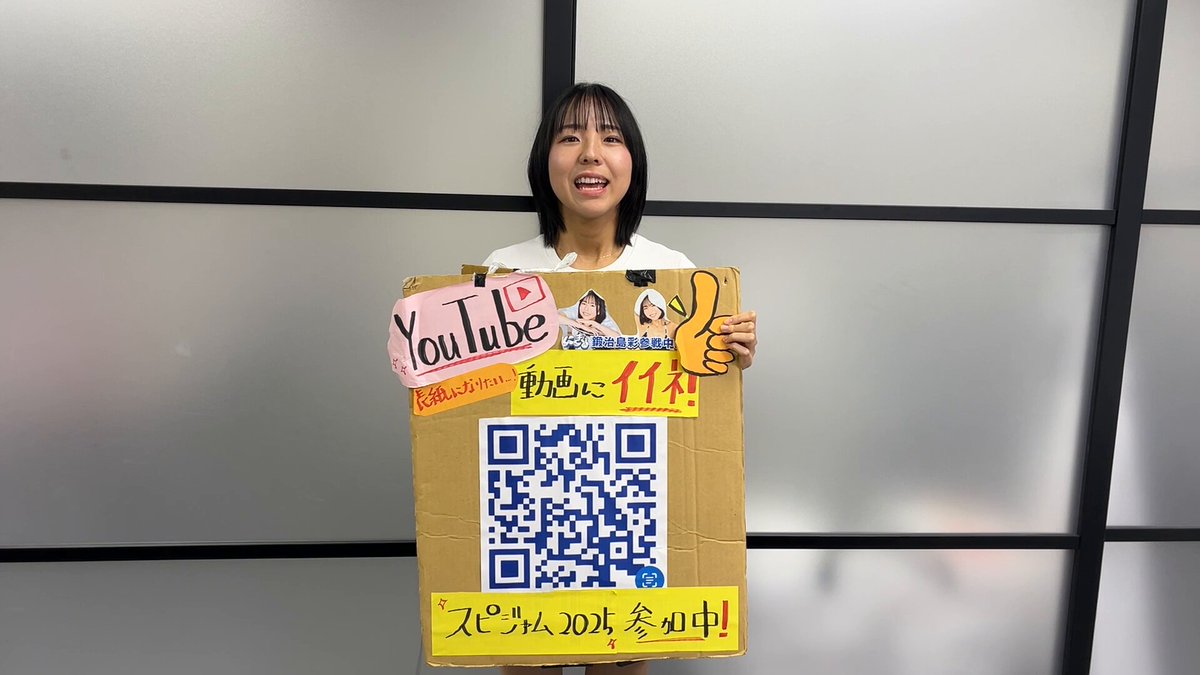 YouTube
鍛治島彩参戦中
表紙になりたい…!
動画にイイネ!
スピジャム2025 参加中!